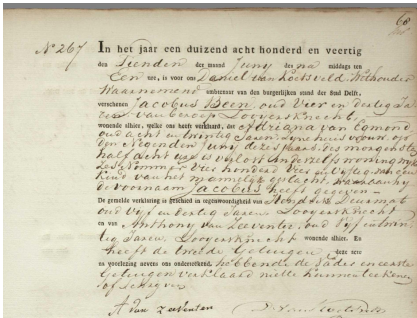 60
No 267
In het jaar een duizend acht honderd en veertig
den Tienden der maand Juny des na middags ten
Een ure, is voor ons Daniel van Koetsveld, Wethouder
Waarnemend ambtenaar van den burgerlijken stand der Stad Delft,
verschenen Jacobus Been, oud Vier en dertig Ja-
ren, van beroep Looyersknecht
wonende alhier, welke ons heeft verklaard, dat Adriana van Egmond
oud acht en twintig Jaren, zyne huisvrouw, op
den Negenden Juny dezes jaars, des morgens te
half acht ure is verlost in derzelfs woning wyk
Zes Nommer Vier honderd Vier en vyftig van een
kind van het mannelyk geslacht, waaraan hy
de voornaam Jacobus heeft gegeven
De gemelde verklaring is geschied in tegenwoordigheid van Hendrik
oud vyf en dertig Jaren Looyersknecht
en van Anthony van Leeventer, oud Vyf en twin-
tig Jaren, Looyersknecht wonende alhier. En
heeft de tweede Getuigen deze acte
na voorlezing nevens ons onderteekend, hebbende de Vader en eerste
Getuigen verklaard niet te kunnen teekenen
of schryven
A van